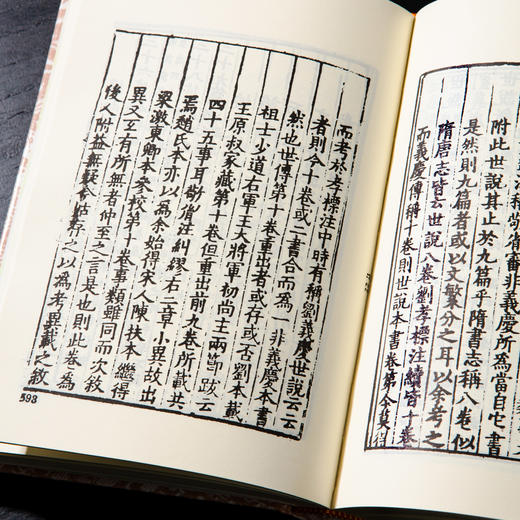 稱敬胄審非義慶所為當自它書
附此世說其止於九篇乎隋書志稱八卷似
是然則九篇者或以文繁分之耳以余考之
隋唐志皆云世說八卷劉孝標注續皆十卷
而義慶傳稱十卷則世說本書卷第今莫得
而考於孝標注中時有稱劉義慶世說云云
者則今十卷或二書合而為一非義慶本書
然也世傳第十卷重出者或存或否劉本載
祖士少道右軍王大將軍初尚主兩節跋云
王原叔家藏第十卷但重出前九卷所載共
四十五事耳敬胄注糾繆右二章小異故出
焉趙氏本亦以為余始得宋人陳扶本繼得
梁激東卿本參校第十卷事類雖同而次敘
異又互有所無者仲至之言是也則此卷為
後人附益無疑今姑存之以為考異載之敘
593